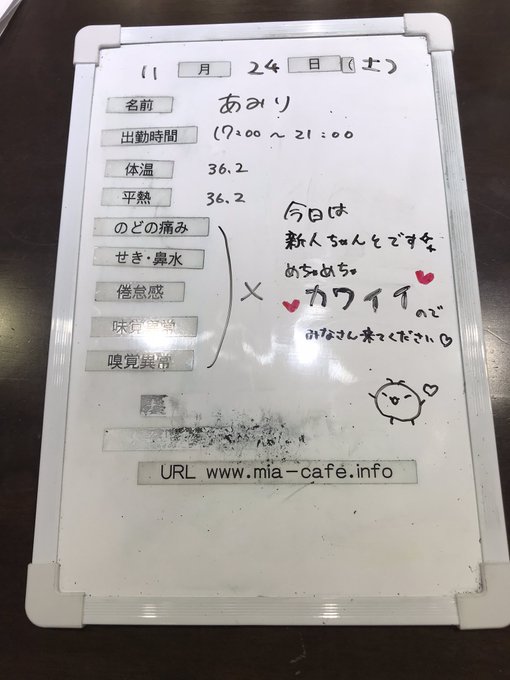 11 月 24 日 (土)
名前 あみり
出勤時間 17:00 ~ 21:00
体温 36.2
平熱 36.2
のどの痛み
せき・鼻水
倦怠感
味覚異常
嗅覚異常
×
今日は
新人ちゃんとです
めちゃめちゃ
カワイイ
ので
みなさん来てください
URL www.mia-cafe.info